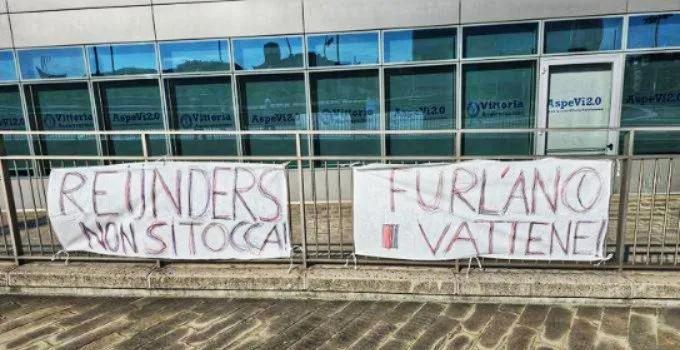 Vittoria
AspeVi2.0
Vittoria
AspeVi2.0
Vittoria
AspeVi2.0
Vittoria
AspeVi2.0
AspeVi2.0
REIJNDERS
NON SI TOCCA!
FURLANO
VATTENE!